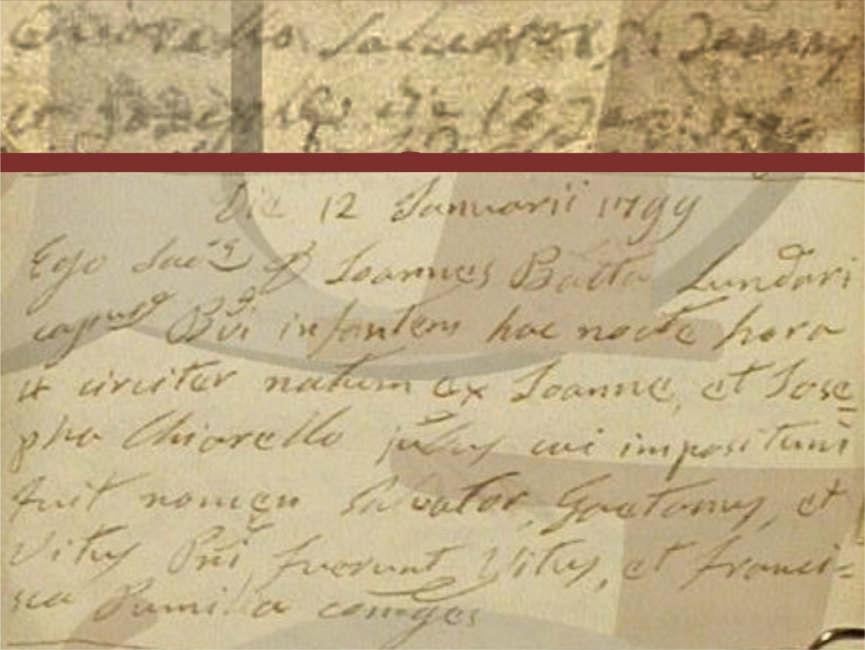 Chiorello Salvadore, di Joanny
e Josepha die 12 Jan.
Die 12 Januarii 1799
Ego Sac: D. Joannes Batta Lundari
capus Bvi infantem hac nocte hora
it circiter natum ex Joanne, et Jose=
pha Chiorello jubus cui impositum
fuit nomen Salvator, Gaetanus, et
Vitus Pni fuerunt Vitus, et Franci=
sca Pumilia coniuges